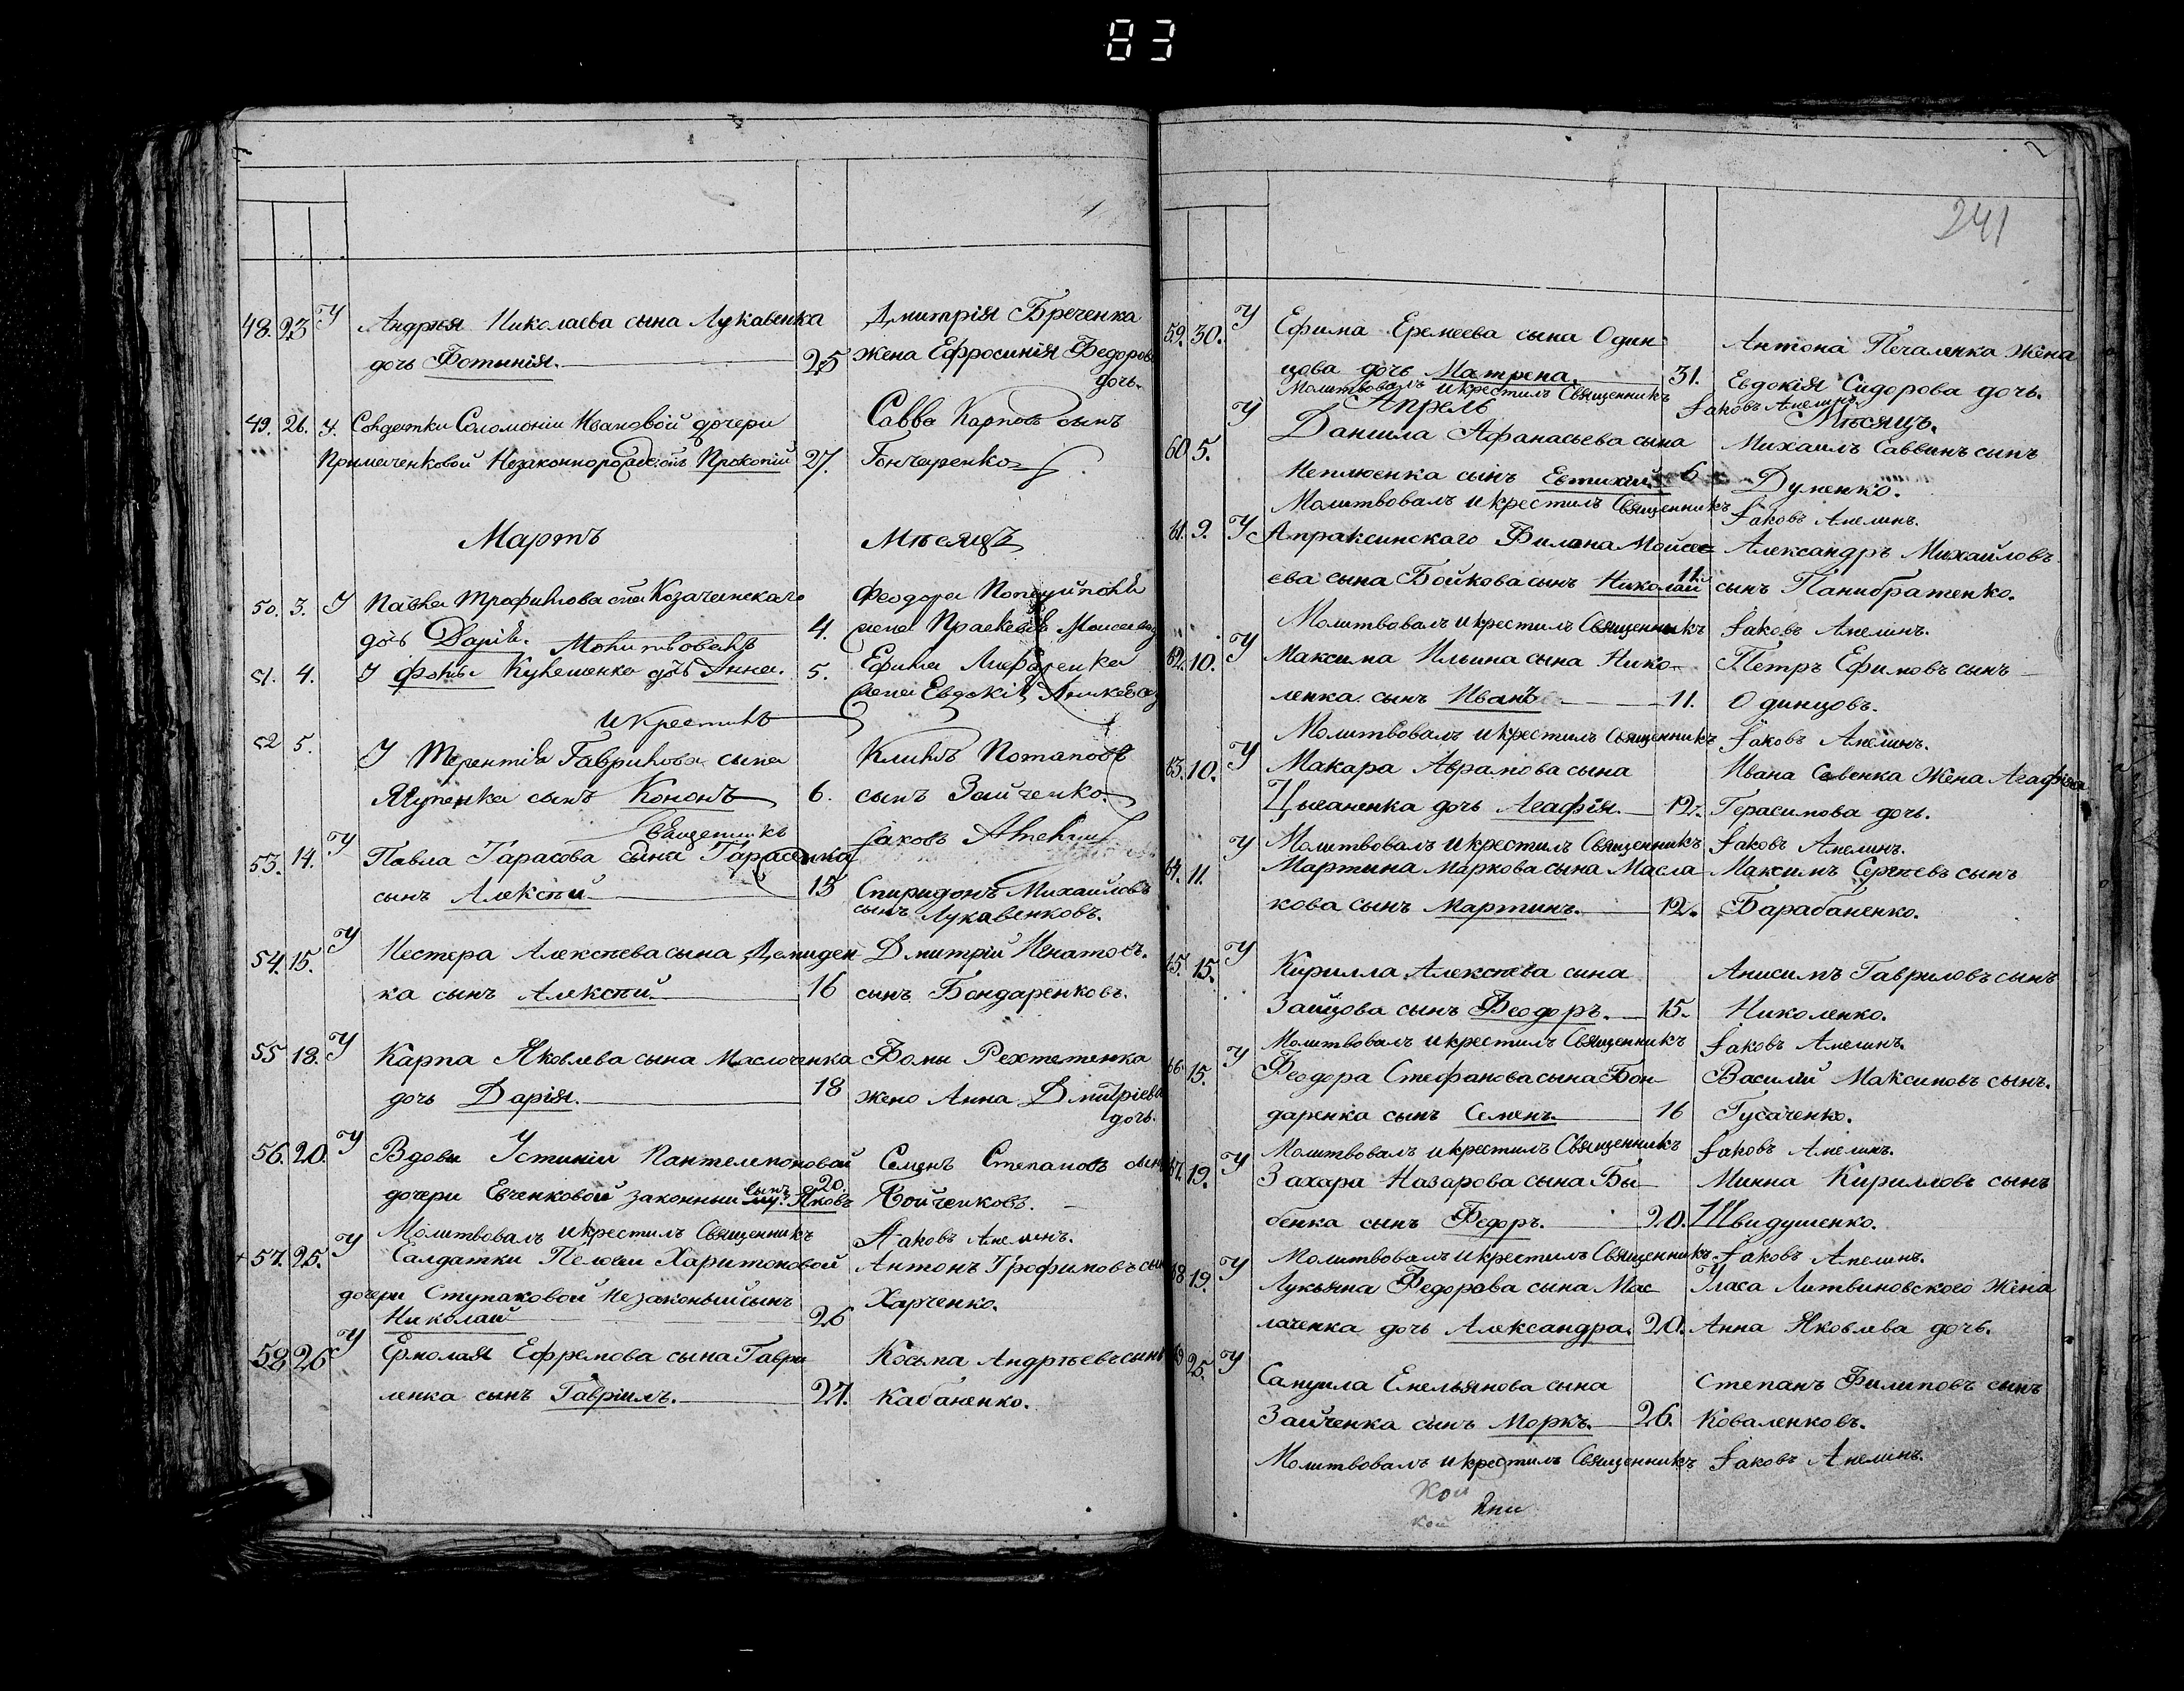 83
241
48. 23 У Андрѣя Николаева сына Лукавенка
дочь Фотинія. 25
Дмитрія Бреченка
жена Ефросинія Федорова
дочь.
49. 26. У. Солдатки Соломоніи Ивановой дочери
Незаконнорожденой Прокопій 27.
Савва Карповъ сынъ
Гончаренко
Мартъ Мѣсяцъ
50. 3. У Павла Трофимова сна Козачинскаго
дочь Дарія. Молитвовалъ 4.
Феодора
жена Праскевія Моисеева
51. 4. У дочь Анна. 5.
Ефима
жена Евдокія
и крестилъ
52 5. У Терентія Гаврилова сына
сынъ Кононъ 6.
Климъ Потаповъ
сынъ Зайченко.
Священникъ Іаковъ Апелин
53. 14. У Павла Тарасова сына Тарасенка
сынъ Алексѣй 15
Спиридонъ Михаиловъ
сынъ Лукавенковъ.
54. 15. У Нестера Алексѣева сына Демиден
ка сынъ Алексѣй. 16
Дмитрій Игнатовъ.
синъ Бондаренковъ.
55 18. У Карпа Яковлева сына Маслоченка
дочь Дарія. 18
Фомы Рехтетенка
жено Анна Дмитріева
дочь.
56. 20. У Вдовы Устиніи Пантелемоновой
дочери Евченковой законный сынъ Яковъ 20.
Семенъ Степановъ сынъ
Бойченковъ.
Молитвовалъ и крестилъ Священникъ Іаковъ Апелинъ.
+ 57. 25. У Салдатки Пелагеи Харитоновой
дочери Ступаковой Незаконый сынъ
Николай 26
Антонъ Трофимовъ сын
Харченко.
58 26 У Ермолая Ефремова сына Гаври
ленка сынъ Гавріилъ. 27.
Косьма Андрѣевъ сынъ
Кабаненко.
59. 30. У Ефима Еремеева сына Один
цова дочь Матрена. 31.
Антона Печаленка жена
Евдокія Сидорова дочь.
Молитвовалъ и крестилъ Священникъ Іаковъ Апелинъ
Апрель Мѣсяцъ.
60 5. У Даниила Афанасьева сына
Неплюенка сынъ Евтихій. 6
Михаилъ Саввинъ сынъ
Думенко.
Молитвовалъ и крестилъ Священникъ Іаковъ Апелинъ.
61. 9. У Апраксинскаго Филона Моисее
ева сына Бойкова сынъ Николай 11.
Александръ Михаиловъ
сынъ Панибратенко.
Молитвовалъ и крестилъ Священникъ Іаковъ Апелинъ.
62. 10. У Максима Ильина сына Нико
ленка сынъ Иванъ 11.
Петръ Ефимовъ сынъ
Одинцовъ.
Молитвовалъ и крестилъ Священникъ Іаковъ Апелинъ.
63. 10. У Макара Аврамова сына
Цыганенка дочь Агафія. 12.
Ивана Савенка жена Агафія
Герасимова дочь.
Молитвовалъ и крестилъ Священникъ Іаковъ Апелинъ.
64. 11. У Мартина Маркова сына Масла
кова сынъ Мартинъ. 12.
Максимъ Сергѣевъ сынъ
Барабаненко.
65. 15. У Кирилла Алексѣева сина
Зайцова сынъ Феодоръ. 15.
Анисимъ Гавриловъ сынъ
Николенко.
Молитвовалъ и крестилъ Священникъ Іаковъ Апелинъ.
66. 15. У Феодора Стефанова сына Бон
даренка сынъ Семенъ. 16
Василій Максимовъ сынъ.
Гусаченко.
Молитвовалъ и крестилъ Священникъ Іаковъ Апелинъ.
67. 19. У Захара Назарова сына Бы
бенка сынъ Федоръ. 20.
Минна Кирилловъ сынъ
Швидушенко.
Молитвовалъ и крестилъ Священникъ Іаковъ Апелинъ.
68 19. У Лукьяна Федорова сына Мас
лаченка дочь Александра. 20.
Уласа Литвиновского жена
Анна Яковлева дочь.
69 25. У Самуила Емельянова сына
Зайченка сынъ Моркъ. 26.
Степанъ Филиповъ сынъ
Коваленковъ.
Молитвовалъ и крестилъ Священникъ Іаковъ Апелинъ.
Кои
кои